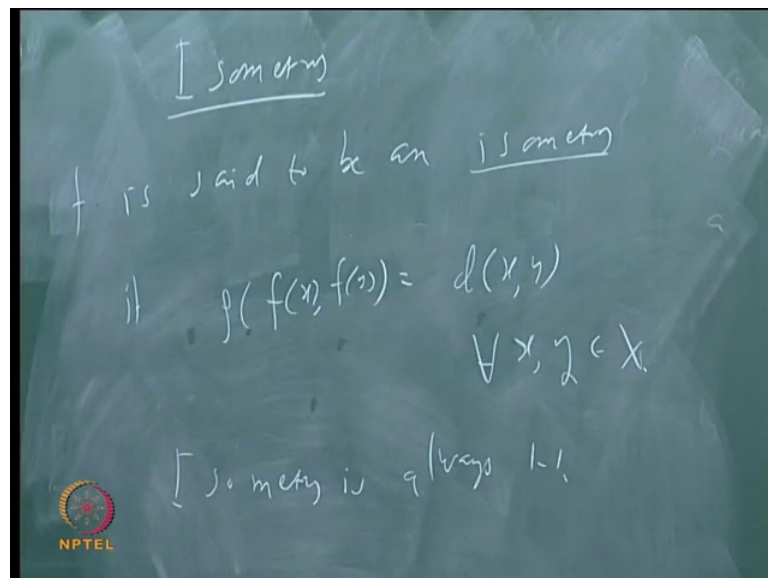 Isometry
f is said to be an isometry
if ρ(f(x), f(y)) = d(x, y)
∀ x, y ∈ X.
Isometry is always 1-1.
NPTEL